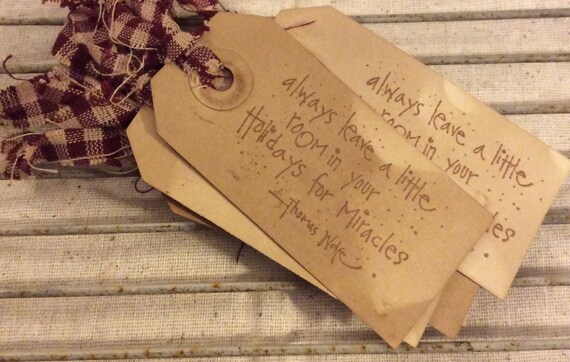 always leave a little
room in your
Holidays for Miracles
—Thomas Wate
always leave a little
room in your